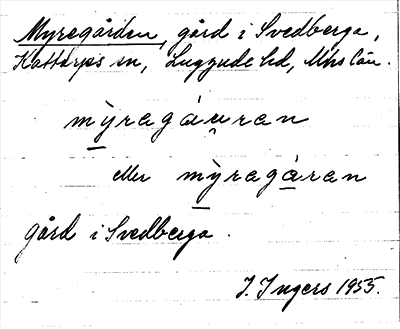 Myregården, gård i Svedberga,
Kattarps sn, Luggude hd, Mhs län.
mỳragáu̯ran
eller mỳragáran
gård i Svedberga.
I. Ingers 1955.